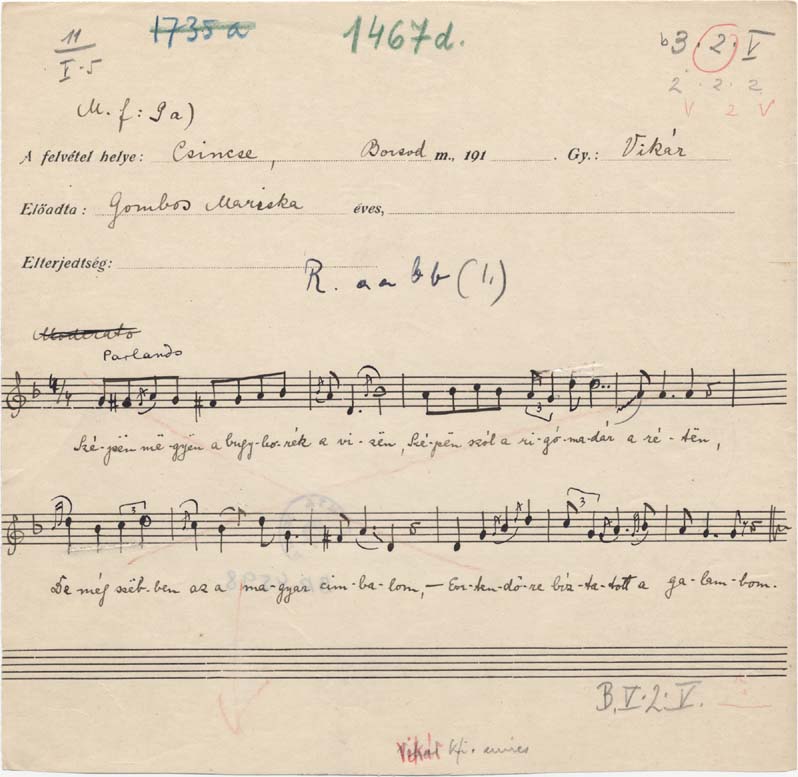 11
I·5
1735a
1467d.
b3·2·V
2·2·2
V 2 V
M. f: 9a)
A felvétel helye: Csincse, Borsod m., 191 . Gy.: Vikár
Előadta: Gombos Mariska éves,
Elterjedtség:
R. aabb (1,)
Moderato
Parlando
4/4
3
Szé-pën më-gyën a bugy-bo-rék a vi-zën, Szé-pën szól a ri-gó-ma-dár a ré-tën,
3 3
De még szëb-ben az a ma-gyar cim-ba-lom, — Esz-ten-dő-re bíz-ta-tott a ga-lam-bom.
B.V·2·V.
Vikár